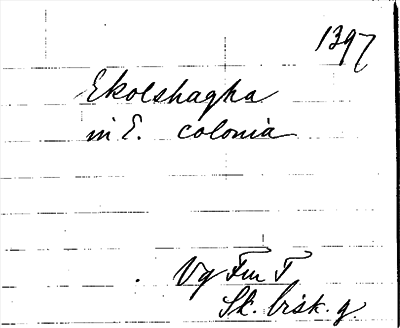 1397
Ekolshagha
in E. colonia
Vg Fru T
Sk. bisk. g.